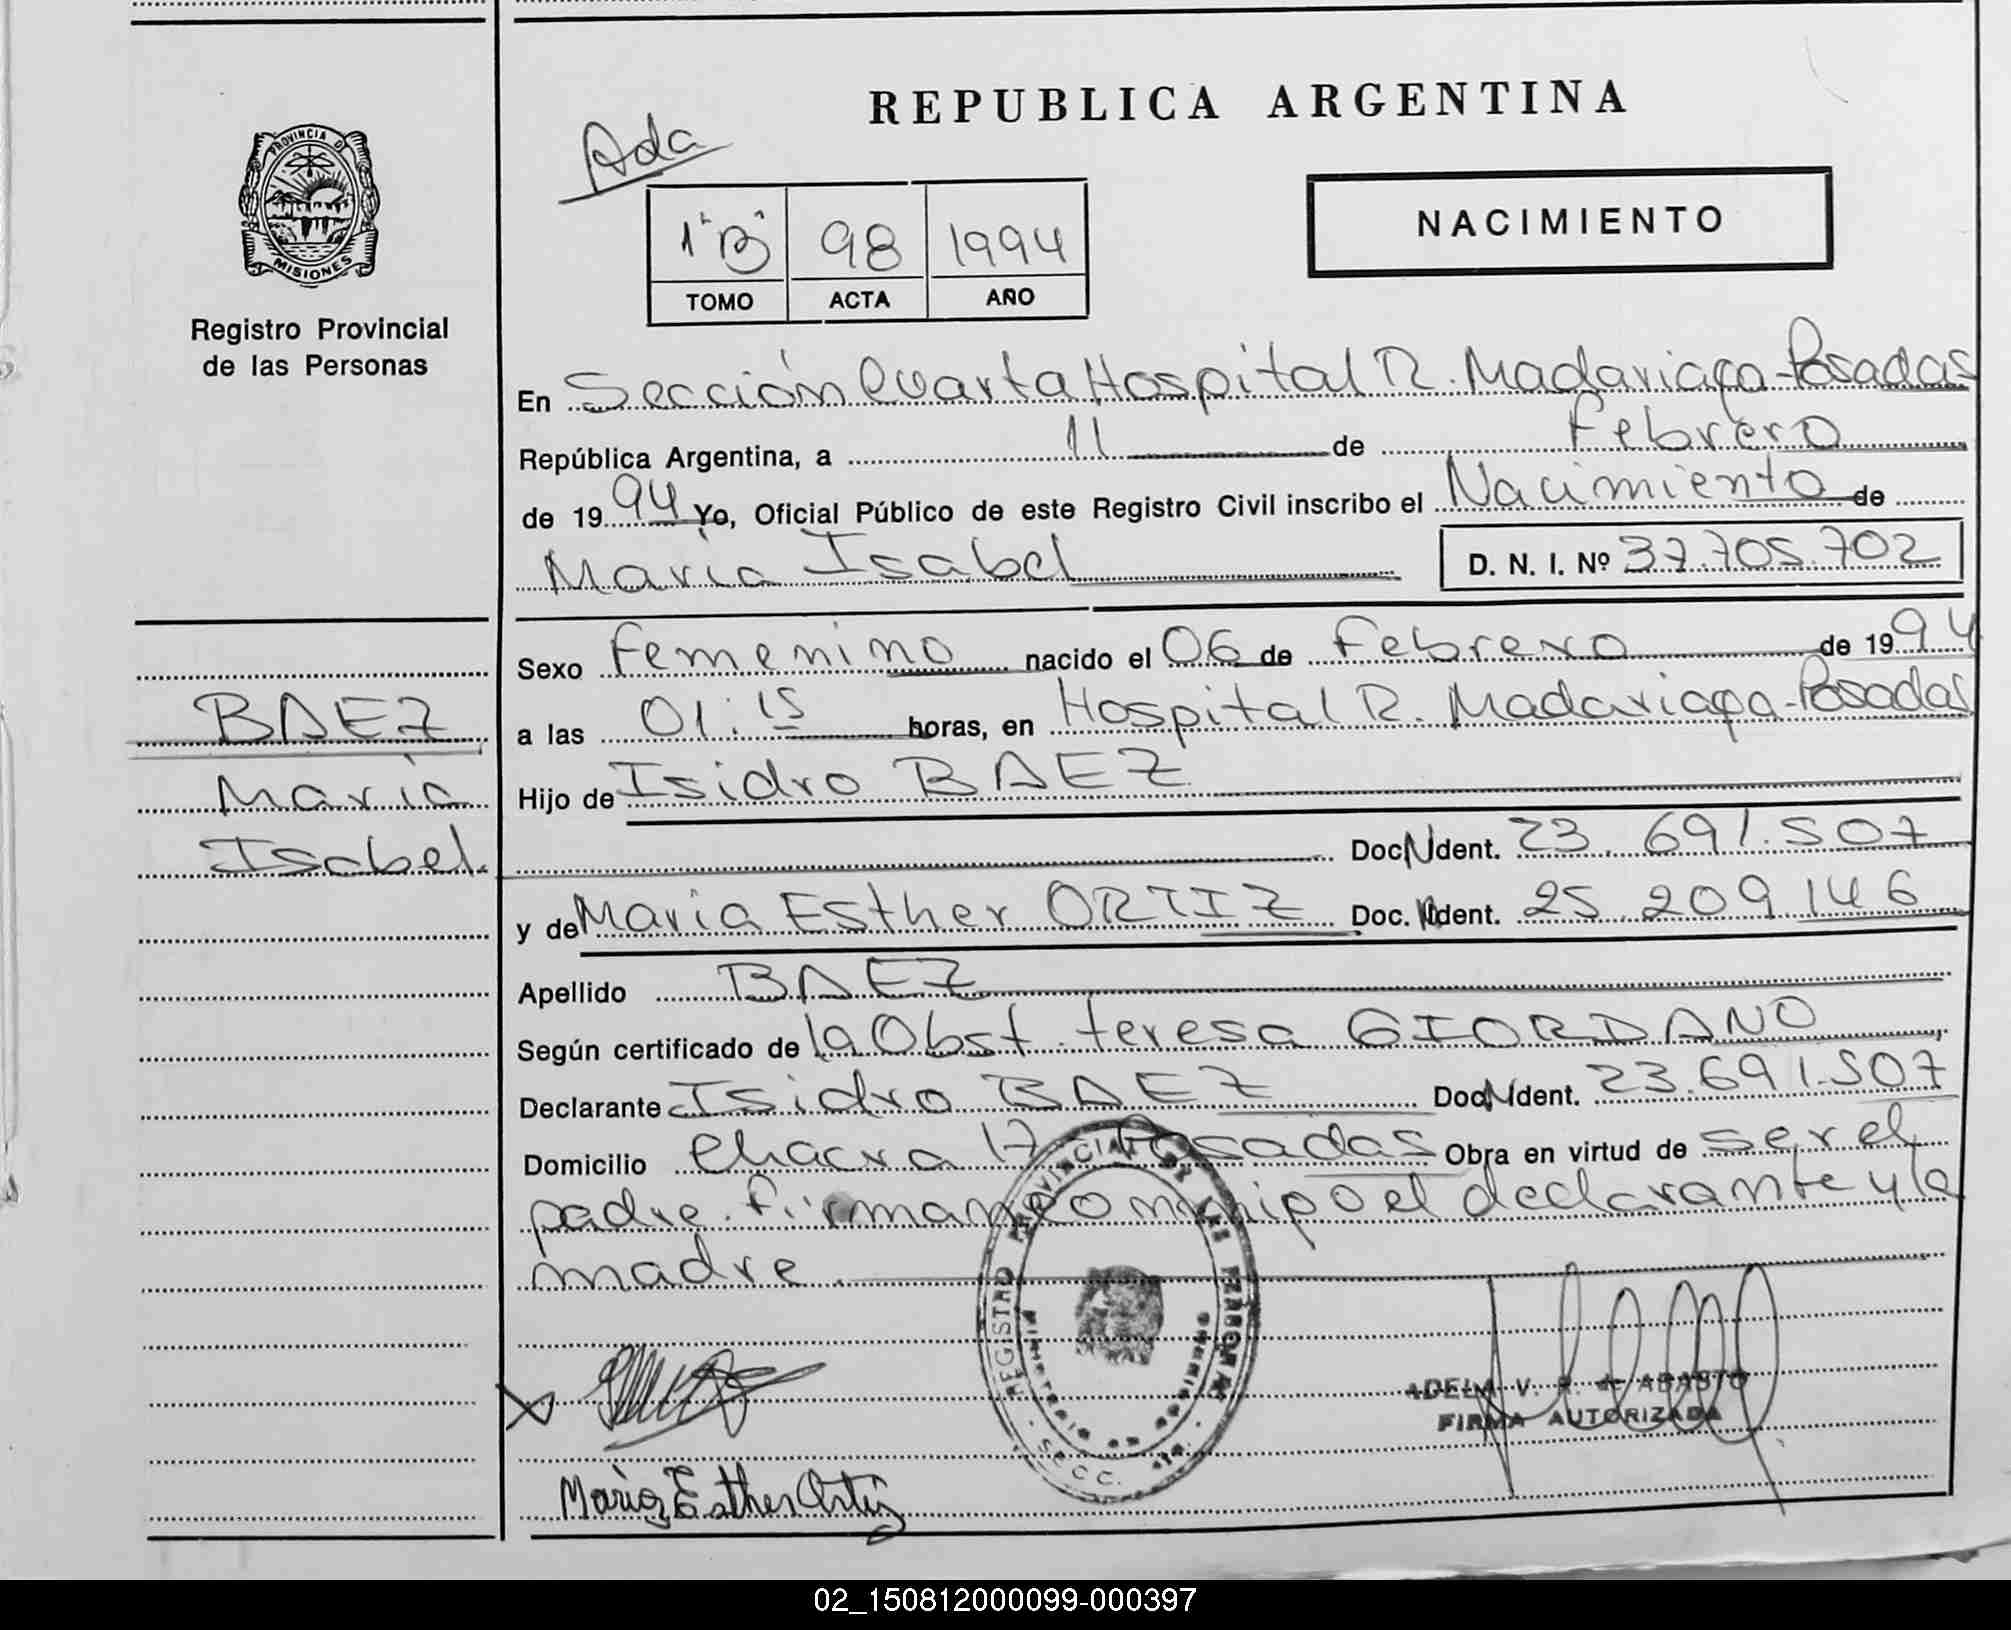 REPUBLICA ARGENTINA
Ada
PROVINCIA D
MISIONES
Registro Provincial
de las Personas
1° "B" 98 1994
TOMO ACTA AÑO
NACIMIENTO
En Sección Cuarta Hospital R. Madariaga - Posadas
República Argentina, a 11 de Febrero
de 1994 Yo, Oficial Público de este Registro Civil inscribo el Nacimiento de
Maria Isabel D. N. I. Nº 37.705.702
Sexo Femenino nacido el 06 de Febrero de 1994
a las 01:15 horas, en Hospital R. Madariaga - Posadas
BAEZ
Maria
Isabel.
Hijo de Isidro BAEZ
Doc. Ident. 23.691.507
y de Maria Esther ORTIZ Doc. Ident. 25.209.146
Apellido BAEZ
Según certificado de la Obst. teresa GIORDANO
Declarante Isidro BAEZ Doc. Ident. 23.691.507
Domicilio Chacra 17 Posadas Obra en virtud de ser el
padre. Firman conmigo el declarante y la
madre.
REGISTRO PROVINCIAL DE LAS PERSONAS
ADELA V. R. de ABASTO
FIRMA AUTORIZADA
Maria Esther Ortiz
02_150812000099-000397